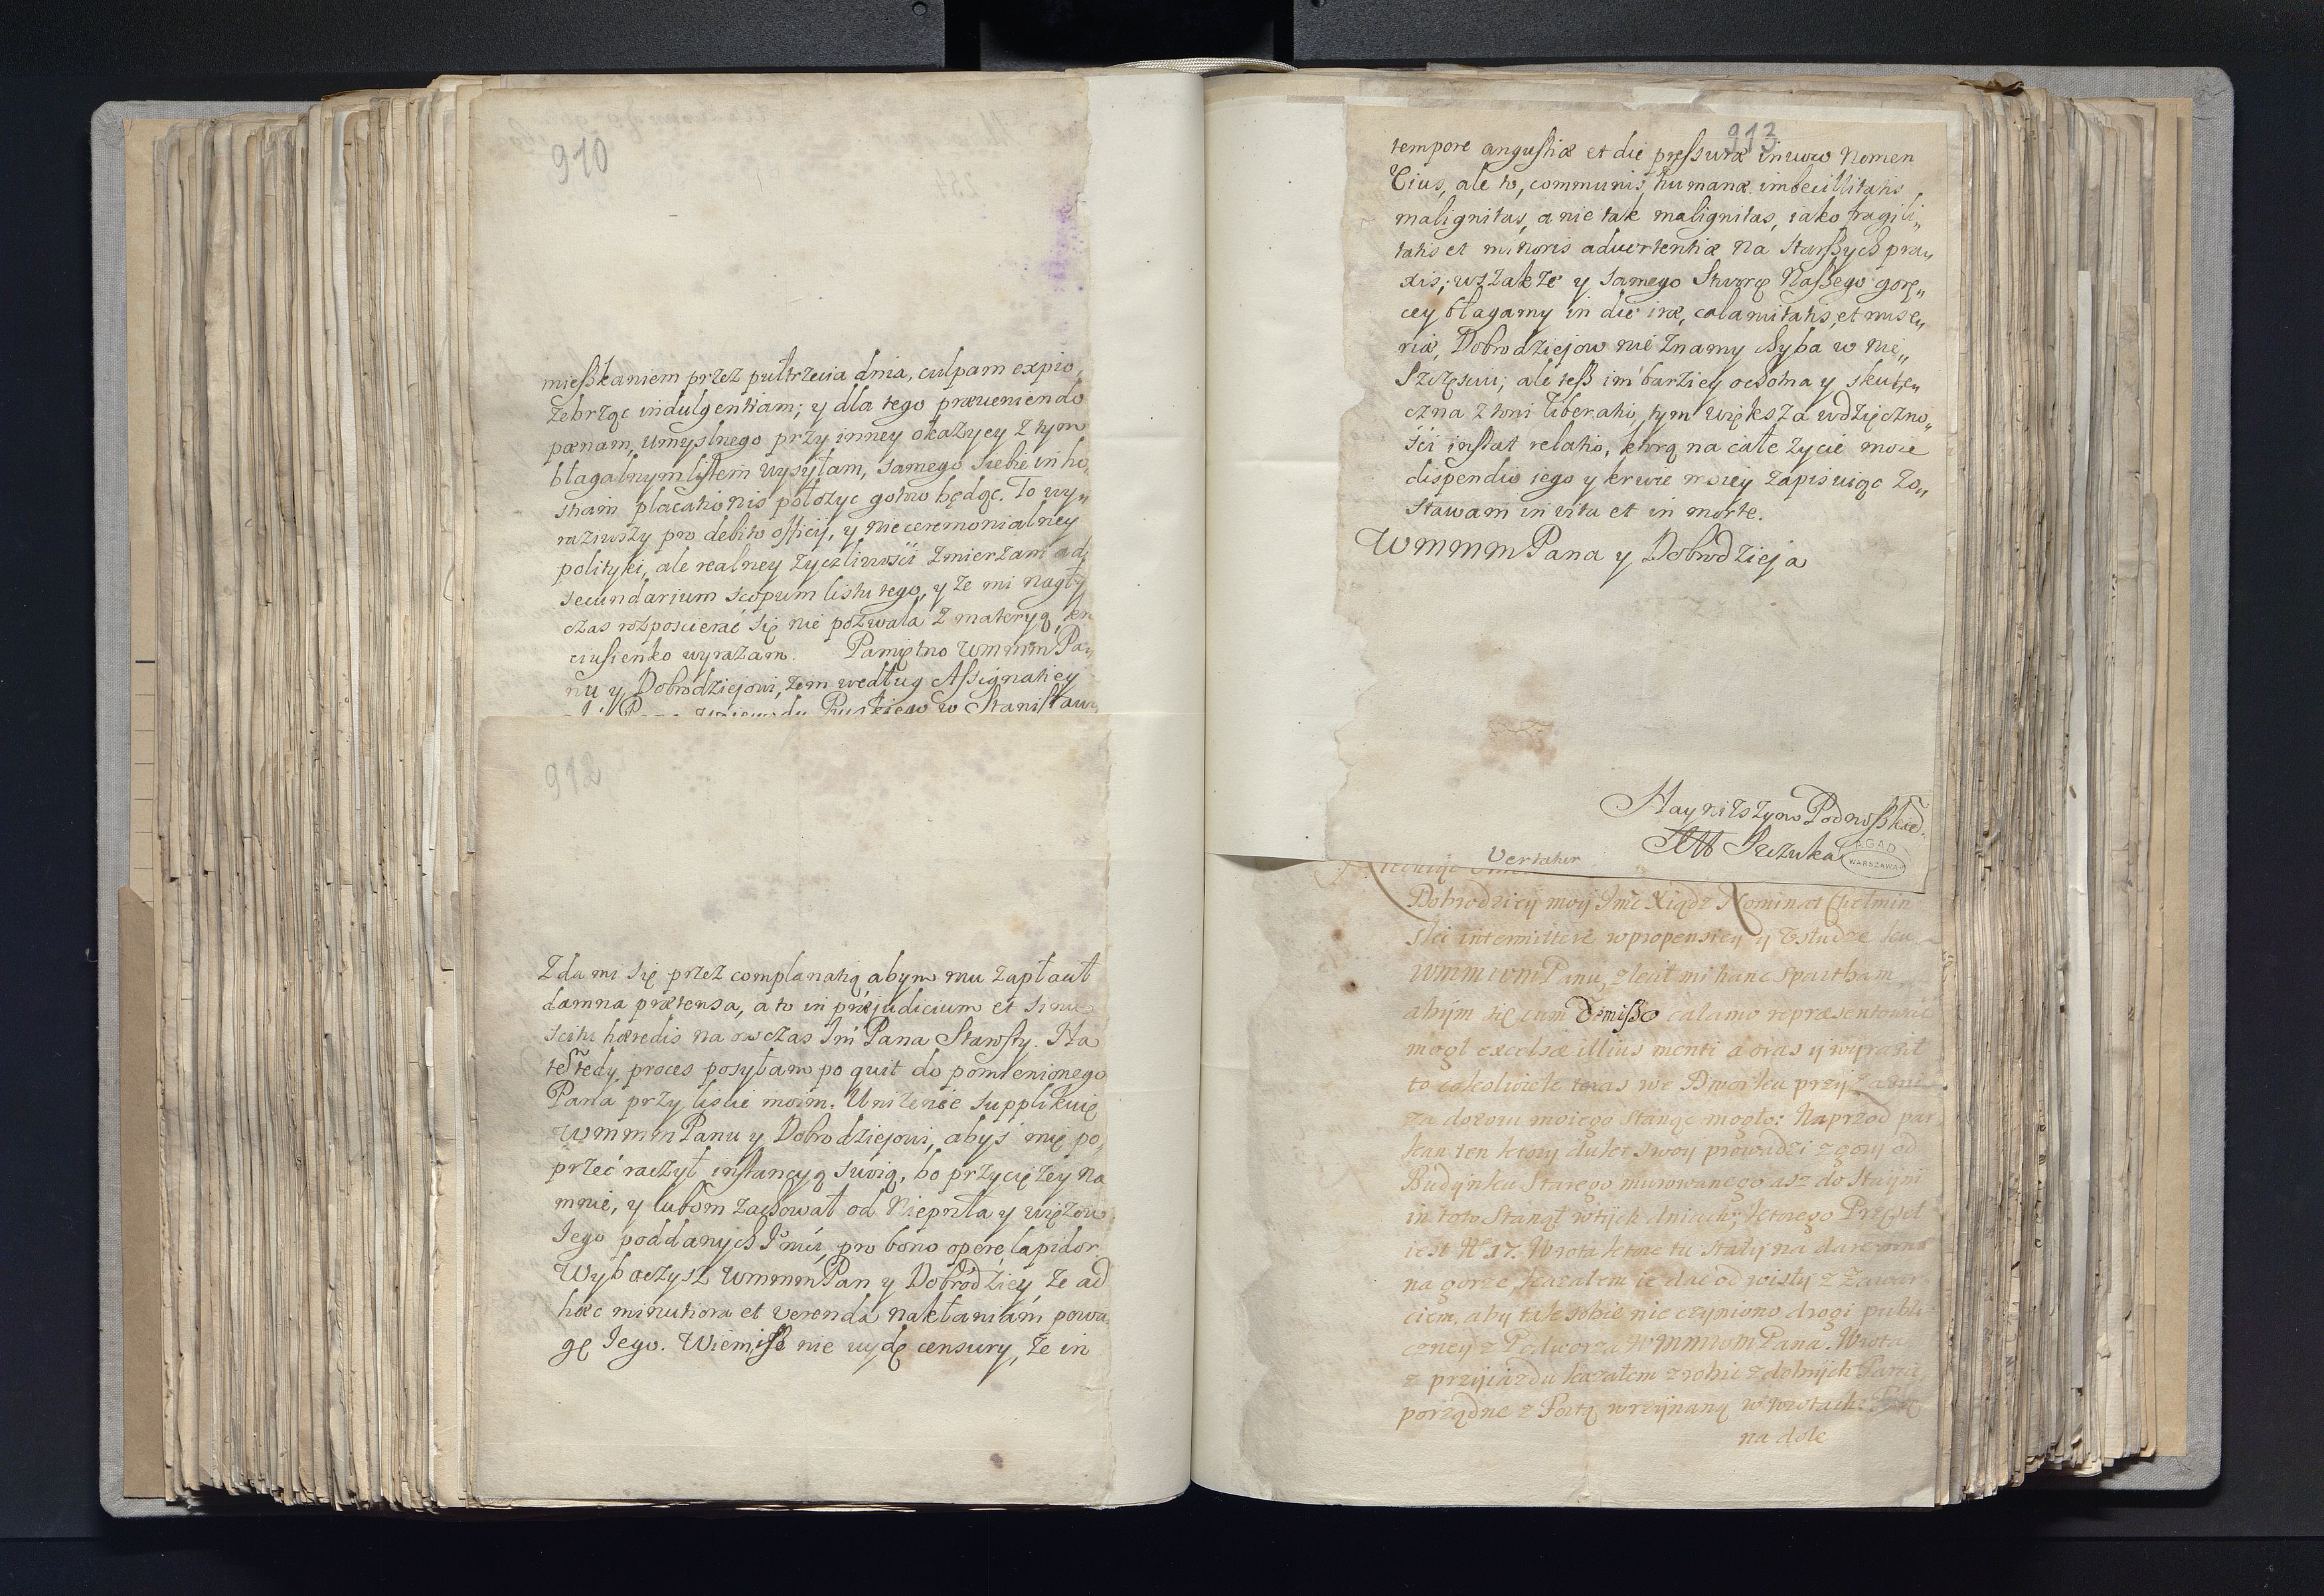 910
mieszkaniem przez pułtrzecia dnia, culpam expio,
żebrząc indulgentiam; y dla tego præveniendo
pænam, umyslnego przy inney okazycy z tym
błagalnym listem wysyłam, samego siebie in ho,
stiam placationis położyc gotow będąc. To wy„
raziwszy pro debito officij, y nie ceremonialney
polityki, ale realney życzliwości zmierzam ad
secundarium scopum listu tego, y że mi nagły
czas rozposcierać się nie pozwala z materyą, kro
ciusieńko wyrażam. Pamiętno WmmmPa„
nu y Dobrodziejowi, żem według Assignatiey
Pana Woiewody Ruskiego w Stanisław
912
Zda mi się przez complanatią abym mu zapłacił
damna prætensa, a to in præjudicium et sine
scitu hæredis na owczas Jm Pana Starosty. Na
tesz tedy proces posyłam po quit do pomienionego
Pana przy liscie moim. Uniżenie supplikuię
WmmmPanu y Dobrodziejowi, abyś mię po„
przeć raczył instancyą swoią, bo przycięży na
mnie, y lubom zachował od Nieprzla y więzow
Jego poddanych Jmći, pro bono opere lapidor.
Wybaczysz WmmmPan y Dobrodziey, że ad
hæc minutiora et verenda nakłaniam powa
gę Jego. Wiem, isz nie uydę censury, że in
913
tempore angustiæ et die pressuræ invoco Nomen
Eius, ale to, communis, humanæ imbecillitatis
malignitas, a nie tak malignitas, iako fragili„
tatis et minoris advertentiæ na starszych pra„
xis; wszakże y samego Stworcę Naszego gorę„
cey błagamy in die iræ, calamitatis, et mise„
riæ, Dobrodziejow nie znamy chyba w nie„
szczęsciu; ale tesz im barziey ochotna y skute„
czna z toni liberatio, tym większa wdzięczno„
ści instat relatio, ktorą na całe zycie moie
dispendio iego y krwie moiey zapisuiąc zo„
stawam in vita et in morte.
WmmmPana y Dobrodzieja
Nayniższym Podnoszkiē.
Szczuka
AGAD
WARSZAWA
Vertatur
Dobrodziey moy Jmć Xiądz Nominat Chełmin
ski intermittere w propensiey y usłudze ku
WmmwmPanu, zlecił mi hanc spartham,
abym się cum demisso calamo repræsentować
mogł excelsæ illius menti a oraz y wyraził
to cokolwiek teras we Dworku przy
za dozoru moiego stanąc mogło: Naprzod par
kan ten ktory dukt swoy prowadzi z gory od
Budynku Starego murowanego asz do Stayni
in toto stanął w tych dniach, ktorego Przęseł
iest N° 17. Wrota ktore tu stały na daremno
na gorze, kazałem ie dac od wisły z zawar
ciem, aby tak sobie nie czyniono drogi publi
czney z Podworza WmmwmPana. Wrota
z przyiazdu kazałem zrobic z dobrych
porządne z Fortą wrzynaną w wrotach:
na dole